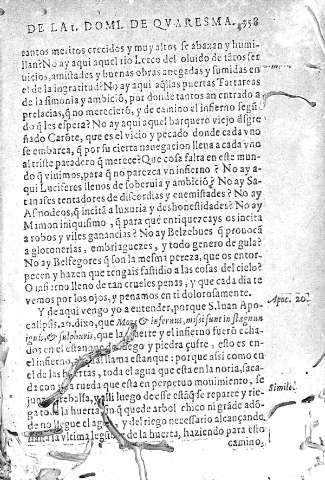 DE LA 1. DOMI. DE QVARESMA. 358
tantos meritos crecidos y muy altos se abaxan y humi-
llan? No ay aqui aquel rio Leteo del oluido de tãtos ser
uicios, amistades y buenas obras anegadas y sumidas en
el de la ingratitud? No ay aqui aq̃llas puertas Tartareas
de la simonia y ambiciõ, por donde tantos an entrado a
prelacias, q̃ no merecierõ, y de camino el infierno segũ
do q̃ les espera? No ay aqui aquel barquero viejo disgre
ñado Carõte, que es el vicio y pecado donde cada vno
se embarca, q̃ por su cierta nauegacion lleua a cada vno
al triste paradero q̃ merece? Que cosa falta en este mun-
do q̃ viuimos, para q̃ no parezca vn infierno? No ay a-
qui Luciferes llenos de soberuia y ambiciõ? No ay Sa-
tanases tentadores de discordias y enemistades? No ay
Asmodeos, q̃ incitã a luxuria y deshonestidades? No ay
Mamon iniquissimo, q̃ para qué enriquezcays os incita
a robos y viles ganancias? No ay Belzebues q̃ prouocã
a glotonerias, embriaguezes, y todo genero de gula?
No ay Belfegores q̃ son la mesma pereza, que os entor-
pecen y hazen que tengais fastidio a las cosas del cielo?
O infierno lleno de tan crueles penas, y que cada dia te
vemos por los ojos, y penamos en ti dolorosamente.
Y de aqui vengo yo a entender, porque S. Iuan Apo-
Apoc. 20.
calipsis. 20. dixo, que Mors & infernus, missi sunt in stagnum
ignis, & sulphuris, que la muerte y el infierno fuerõ echa-
dos en el estanque de fuego y piedra çufre, esto es en-
el infierno, llama estanque: porque assi como en
el de las huertas, toda el agua que esta en la noria, saca-
da con la rueda que esta en perpetuo mouimiento, se
Simile.
junta rebalsa, y alli luego de esse estãq̃ se reparte y rie-
ga toda la huerta, sin q̃ quede arbol chico ni grãde adõ-
de no llegue el agua, y del riego necessario alcançando
hasta la vltima legũbre de la huerta, haziendo para esto
camino,